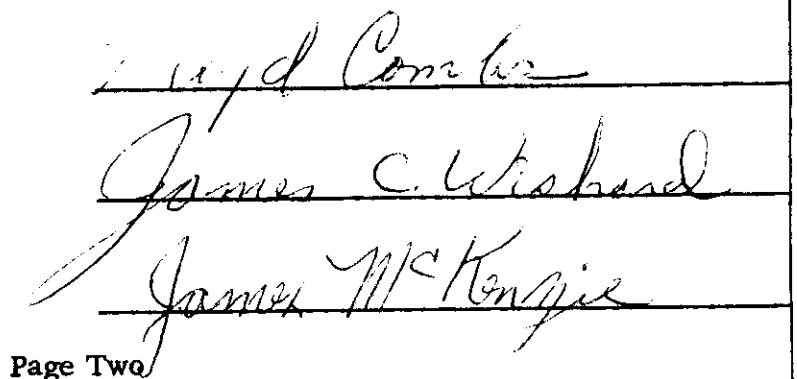 Combs
James C. Wishard
James McKenzie
Page Two